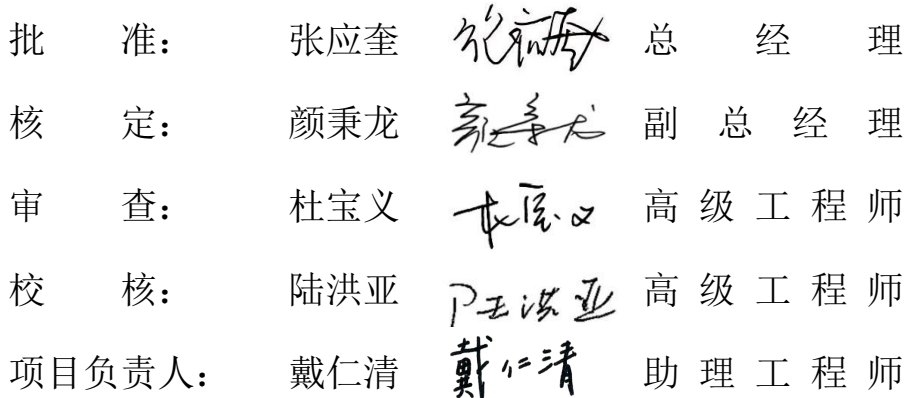 批 准： 张应奎 张应奎 总 经 理
核 定： 颜秉龙 颜秉龙 副 总 经 理
审 查： 杜宝义 杜宝义 高 级 工 程 师
校 核： 陆洪亚 陆洪亚 高 级 工 程 师
项目负责人： 戴仁清 戴仁清 助 理 工 程 师